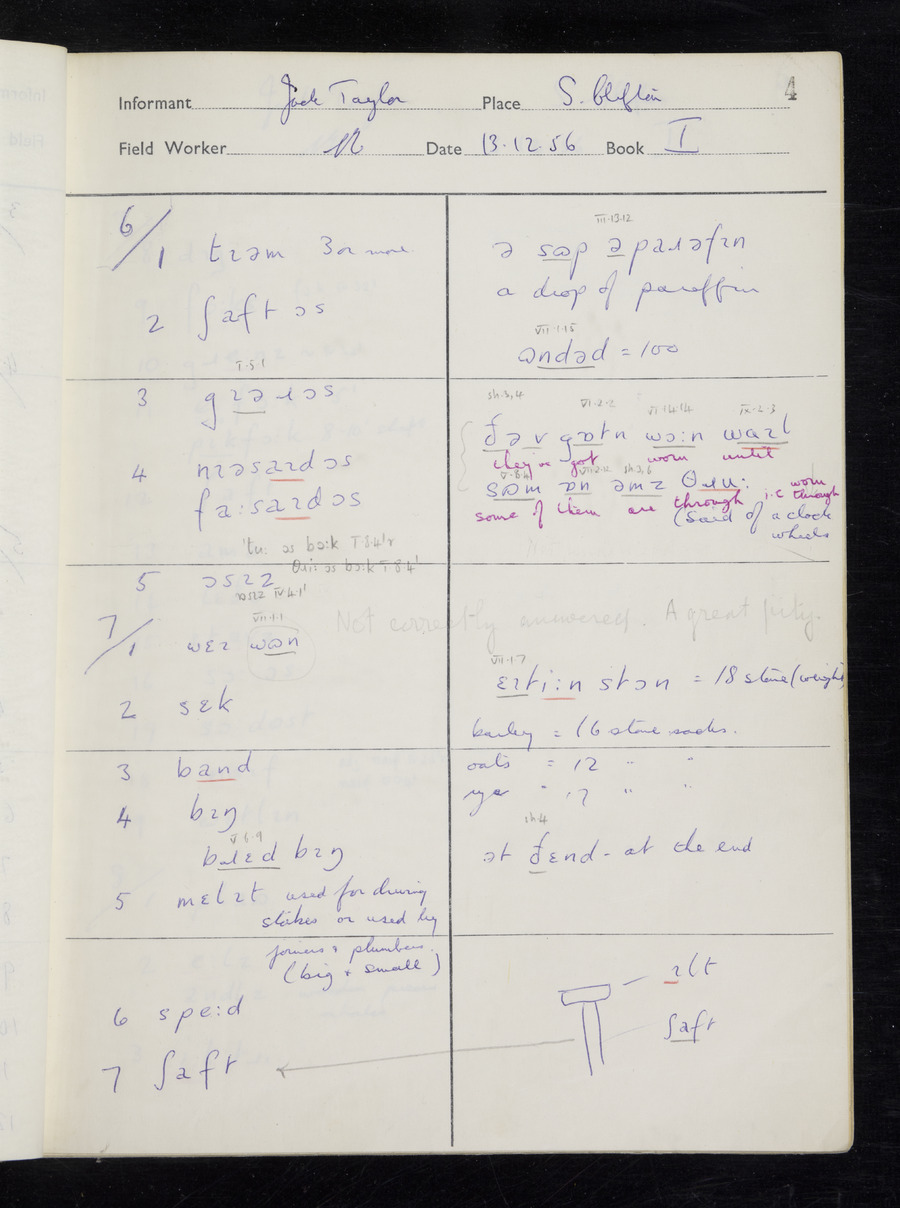 4
Informant Jack Taylor Place S. Clifton
Field Worker Date 13.12.56 Book I
6/1 tɪəm 3 or more
2 ʃaft əs
I.5.1
3 gɪəɹəs
4 nɪəsaɪdəs
fa:saɪdəs
'tu: əs bɔ:k I 8.4'r
θri: əs bɔ:k I 8.4'
5 ɔsɪz
ɔsɪz IV 4.1'
VII.1.1
7/1 wɛɪ wɒn
Not correctly answered. A great pity.
2 sɛk
3 band
4 bɪŋ
V 6.9
bɹɛd bɪŋ
5 mɛlɪt used for driving
stakes or used by
joiners & plumbers.
(big & small)
6 spe:d
7 ʃaft
III.13.12
ə sɒp ə paɹəfɪn
a drop of paraffin
VII.1.15
ɒndəd = 100
sh.3,4 VI.2.2 VI.14.14 IX.2.3
ðəv gɒtn wɔ:n waɪl
they've got worn until
V.8.4 VII.2.12 sh.3,6
sɒm ɒn əmz θɹu:
some of them are through i.e. worn through
(said of a clock
wheels
VII.1.7
ɛɪti:n stɔn = 18 stone (weight)
barley = 16 stone sacks.
oats = 12 " "
rye " 17 " "
sh.4
ət ðɛnd - at the end
ɪlt
ʃaft